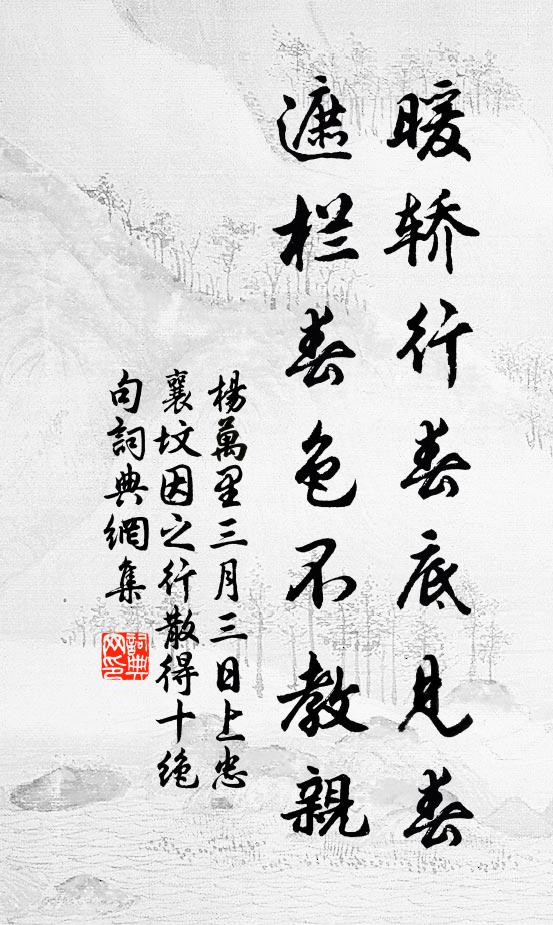 暖轿行春底见春
遮栏春色不教親
楊萬里三月三日上忠
襄坟因之行散得十绝
句詞典網集
詞典
网印